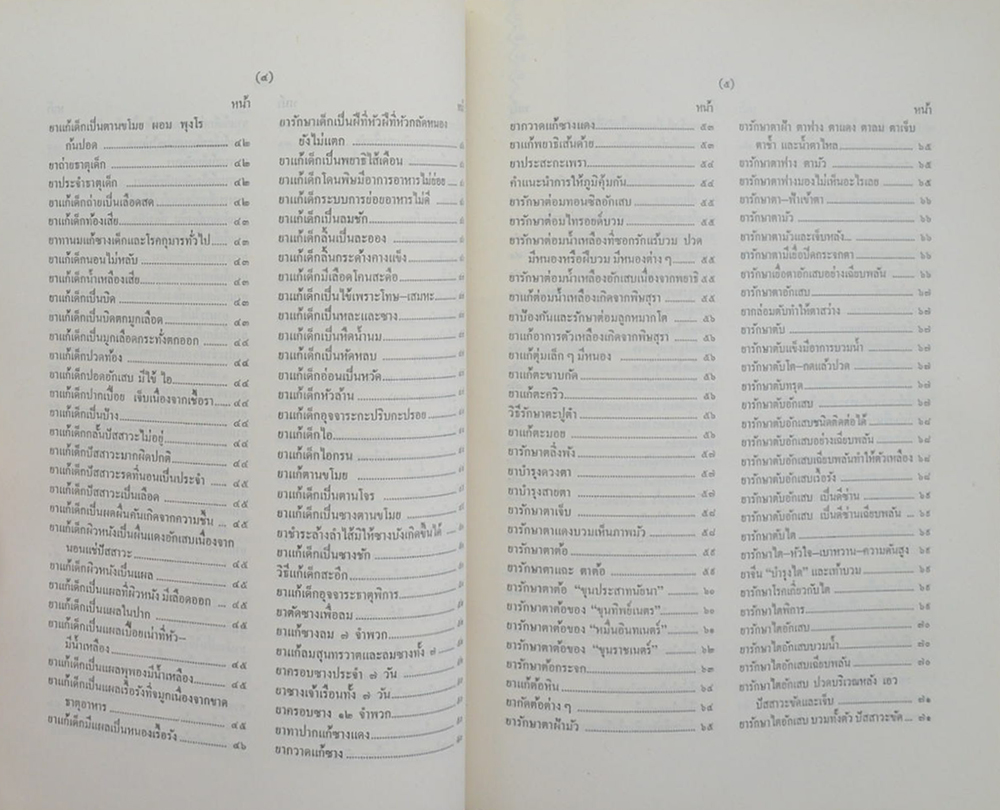 (๔)
หน้า
ยาแก้เด็กเป็นตานขโมย ผอม พุงโร
ก้นปอด ๔๒
ยาถ่ายธาตุเด็ก ๔๒
ยาประจำธาตุเด็ก ๔๒
ยาแก้เด็กถ่ายเป็นเลือดสด ๔๒
ยาแก้เด็กท้องเสีย ๔๓
ยาทานมแก้ซางเด็กและโรคกุมารทั่วไป ๔๓
ยาแก้เด็กนอนไม่หลับ ๔๓
ยาแก้เด็กน้ำเหลืองเสีย ๔๓
ยาแก้เด็กเป็นบิด ๔๓
ยาแก้เด็กเป็นบิดตกมูกเลือด ๔๓
ยาแก้เด็กเป็นมูกเลือดกระทั่งตกออก ๔๔
ยาแก้เด็กปวดท้อง ๔๔
ยาแก้เด็กปอดอักเสบ มีไข้ ไอ ๔๔
ยาแก้เด็กปากเปื่อย เจ็บเนื่องจากเชื้อรา ๔๔
ยาแก้เด็กเป็นป้าง ๔๔
ยาแก้เด็กกลั้นปัสสาวะไม่อยู่ ๔๔
ยาแก้เด็กปัสสาวะมากผิดปกติ ๔๔
ยาแก้เด็กปัสสาวะรดที่นอนเป็นประจำ ๔๕
ยาแก้เด็กปัสสาวะเป็นเลือด ๔๕
ยาแก้เด็กเป็นผดผื่นคันเกิดจากความชื้น ๔๕
ยาแก้เด็กผิวหนังเป็นผื่นแดงอักเสบเนื่องจาก
นอนแช่ปัสสาวะ ๔๕
ยาแก้เด็กผิวหนังเป็นแผล ๔๕
ยาแก้เด็กเป็นแผลที่ผิวหนัง มีเลือดออก ๔๕
ยาแก้เด็กเป็นแผลในปาก ๔๕
ยาแก้เด็กเป็นแผลเปื่อยเน่าที่หัว–
มีน้ำเหลือง ๔๕
ยาแก้เด็กเป็นแผลพุพองมีน้ำเหลือง ๔๕
ยาแก้เด็กเป็นแผลเรื้อรังที่จมูกเนื่องจากขาด
ธาตุอาหาร ๔๕
ยาแก้เด็กมีแผลเป็นหนองเรื้อรัง ๔๖
ยารักษาเด็กเป็นฝีที่หัวฝีที่หัวกลัดหนอง
ยังไม่แตก
ยาแก้เด็กเป็นพยาธิไส้เดือน
ยาแก้เด็กโดนพิษมีอาการอาหารไม่ย่อย
ยาแก้เด็กระบบการย่อยอาหารไม่ดี
ยาแก้เด็กเป็นลมชัก
ยาแก้เด็กลิ้นเป็นละออง
ยาแก้เด็กลิ้นกระด้างคางแข็ง
ยาแก้เด็กมีเลือดโกนสะดือ
ยาแก้เด็กเป็นไข้เพราะโทษ–เสมหะ
ยาแก้เด็กเป็นหละและซาง
ยาแก้เด็กเป็นหืดน้ำนม
ยาแก้เด็กเป็นหัดหลบ
ยาแก้เด็กอ่อนเป็นหวัด
ยาแก้เด็กหัวล้าน
ยาแก้เด็กอุจจาระกะปริบกะปรอย
ยาแก้เด็กไอ
ยาแก้เด็กไอกรน
ยาแก้ตานขโมย
ยาแก้เด็กเป็นตานโจร
ยาแก้เด็กเป็นซางตานขโมย
ยาชำระล้างลำไส้มิให้ซางบังเกิดขึ้นได้
ยาแก้เด็กเป็นซางชัก
วิธีแก้เด็กสะอึก
ยาแก้เด็กอุจจาระธาตุพิการ
ยาตัดซางเพื่อลม
ยาแก้ซางลม ๗ จำพวก
ยาแก้ลมสุนทรวาตและลมซางทั้ง ๗
ยาครอบซางประจำ ๗ วัน
ยาซางเจ้าเรือนทั้ง ๗ วัน
ยาครอบซาง ๑๒ จำพวก
ยาทาปากแก้ซางแดง
ยากวาดแก้ซาง
(๕)
หน้า
ยากวาดแก้ซางแดง ๕๓
ยาแก้พยาธิเส้นด้าย ๕๓
ยาประสะกะเพรา ๕๔
คำแนะนำการให้ภูมิคุ้มกัน ๕๔
ยารักษาต่อมทอนซิลอักเสบ ๕๕
ยารักษาต่อมไทรอยด์บวม ๕๕
ยารักษาต่อมน้ำเหลืองที่ซอกรักแร้บวม ปวด
มีหนองหรือฝีบวม มีหนองต่าง ๆ ๕๕
ยารักษาต่อมน้ำเหลืองอักเสบเนื่องจากพยาธิ ๕๕
ยาแก้ต่อมน้ำเหลืองเกิดจากพิษสุรา ๕๕
ยาป้องกันและรักษาต่อมลูกหมากโต ๕๖
ยาแก้อาการตัวเหลืองเกิดจากพิษสุรา ๕๖
ยาแก้ตุ่มเล็ก ๆ มีหนอง ๕๖
ยาแก้ตะขาบกัด ๕๖
ยาแก้ตะคริว ๕๖
วิธีรักษาตะปูตำ ๕๖
ยาแก้ตะมอย ๕๖
ยารักษาตลิ่งพัง ๕๗
ยาบำรุงดวงตา ๕๗
ยาบำรุงสายตา ๕๗
ยารักษาตาเจ็บ ๕๘
ยารักษาตาแดงบวมเห็นภาพมัว ๕๘
ยารักษาตาต้อ ๕๙
ยารักษาตาแฉะ ตาต้อ ๕๙
ยารักษาตาต้อ “ขุนประสาทนัยนา” ๖๐
ยารักษาตาต้อของ “ขุนทิพย์เนตร” ๖๐
ยารักษาตาต้อของ “หมื่นอินทเนตร์” ๖๑
ยารักษาตาต้อของ “ขุนราชเนตร์” ๖๒
ยารักษาต้อกระจก ๖๓
ยาแก้ต้อหิน ๖๔
ยากัดต้อต่าง ๆ ๖๔
ยารักษาตาฝ้ามัว ๖๕
หน้า
ยารักษาตาฝ้า ตาฟาง ตาแดง ตาลม ตาเจ็บ
ตาช้ำ และน้ำตาไหล ๖๕
ยารักษาตาฟาง ตามัว ๖๕
ยารักษาตาฟางมองไม่เห็นอะไรเลย ๖๕
ยารักษาตา–ฝ้าเข้าตา ๖๖
ยารักษาตามัว ๖๖
ยารักษาตามัวและเจ็บหลัง ๖๖
ยารักษาตามีเยื่อปิดกระจกตา ๖๖
ยารักษาเยื่อตาอักเสบอย่างเฉียบพลัน ๖๖
ยารักษาตาอักเสบ ๖๗
ยากล่อมตับทำให้ตาสว่าง ๖๗
ยารักษาตับ ๖๗
ยารักษาตับแข็งมีอาการบวมน้ำ ๖๗
ยารักษาตับโต–กดแล้วปวด ๖๗
ยารักษาตับทรุด ๖๗
ยารักษาตับอักเสบ ๖๗
ยารักษาตับอักเสบชนิดติดต่อได้ ๖๘
ยารักษาตับอักเสบอย่างเฉียบพลัน ๖๘
ยารักษาตับอักเสบเฉียบพลันทำให้ตัวเหลือง ๖๘
ยารักษาตับอักเสบเรื้อรัง ๖๘
ยารักษาตับอักเสบ เป็นดีซ่าน ๖๙
ยารักษาตับอักเสบ เป็นดีซ่านเฉียบพลัน ๖๙
ยารักษาตับไต ๖๙
ยารักษาไต–หัวใจ–เบาหวาน–ความดันสูง ๖๙
ยาจีน “บำรุงไต” และเท้าบวม ๖๙
ยารักษาโรคเกี่ยวกับไต ๖๙
ยารักษาไตพิการ ๖๙
ยารักษาไตอักเสบ ๗๐
ยารักษาไตอักเสบบวมน้ำ ๗๐
ยารักษาไตอักเสบเฉียบพลัน ๗๐
ยารักษาไตอักเสบ ปวดบริเวณหลัง เอว
ปัสสาวะขัดและเจ็บ ๗๑
ยารักษาไตอักเสบ บวมทั้งตัว ปัสสาวะขัด ๗๑